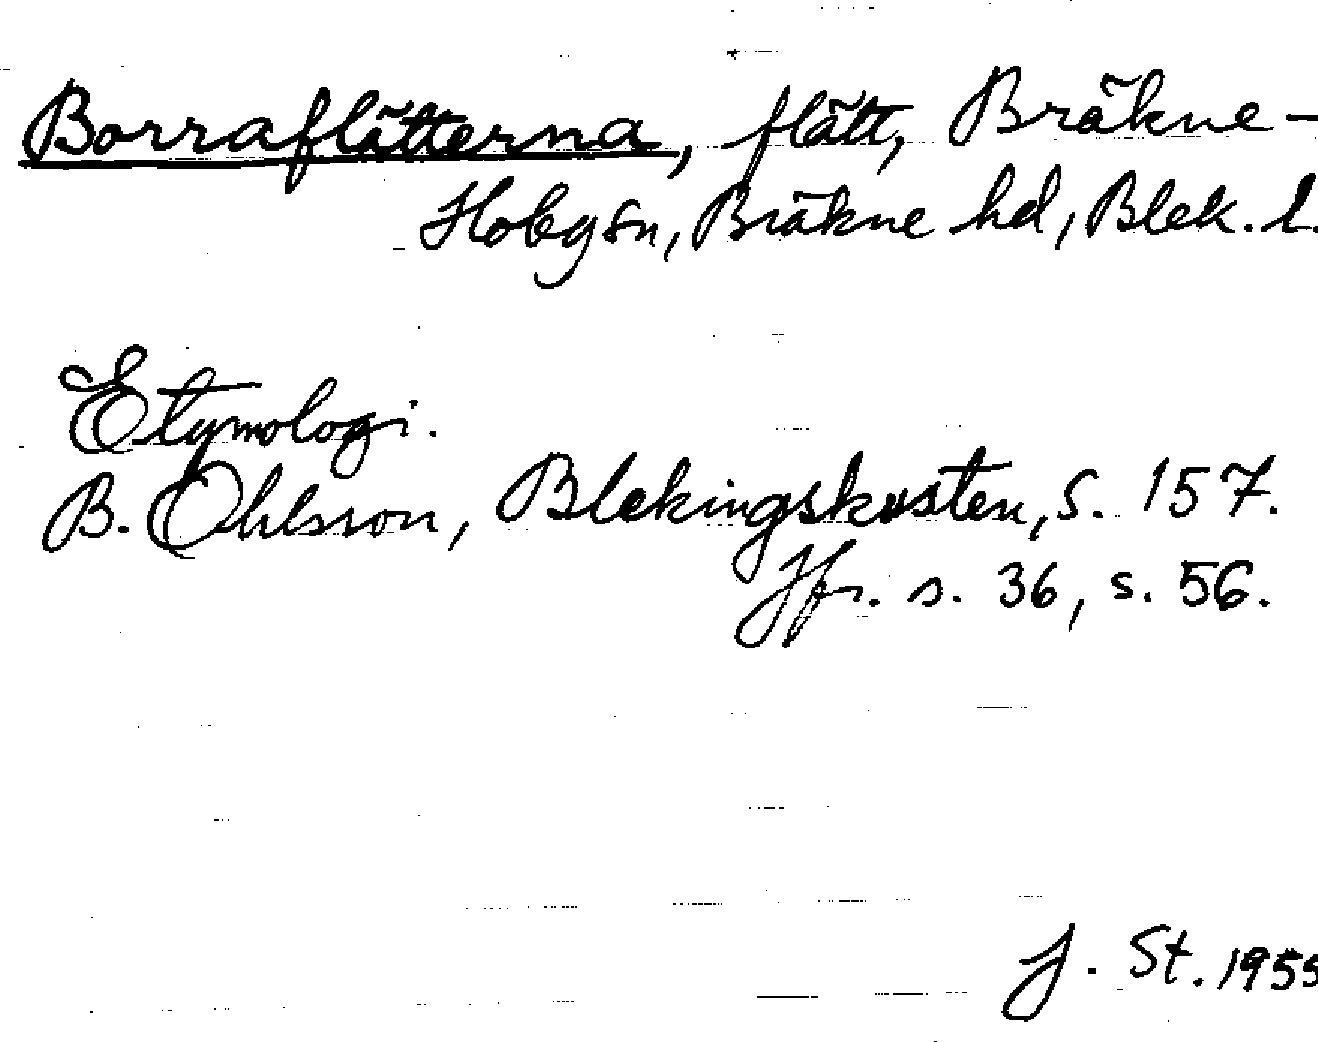 Borraflätterna, flätt, Bräkne-
Hobysn, Bräkne hd, Blek. l.
Etymologi.
B. Ohlsson, Blekingskusten, s. 157.
Jfr. s. 36, s. 56.
J. St. 1955